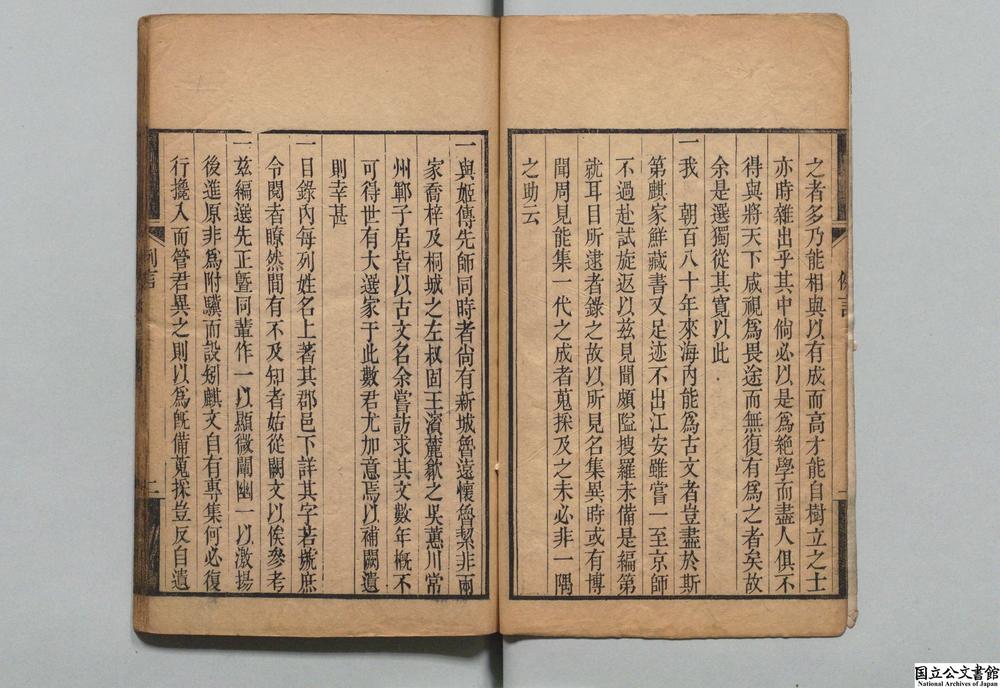 之者多乃能相與以有成而高才能自樹立之士
亦時雜出乎其中倘必以是爲絕學而盡人俱不
得與將天下咸視爲畏途而無復有爲之者矣故
余是選獨從其寬以此
一我　朝百八十年來海內能爲古文者豈盡於斯
第麒家鮮藏書又足迹不出江安雖嘗一至京師
不過赴試旋返以茲見聞頗隘搜羅未備是編第
就耳目所逮者錄之故以所見名集異時或有博
聞周見能集一代之成者蒐採及之未必非一隅
之助云
一與姬傳先師同時者尚有新城魯遠懷魯絜非兩
家喬梓及桐城之左叔固王濱麓歙之吳蕙川常
州鄆子居皆以古文名余嘗訪求其文數年槪不
可得世有大選家于此數君尤加意焉以補闕遺
則幸甚
一目錄內每列姓名上著其郡邑下詳其字若號庶
令閱者瞭然間有不及知者姑從闕文以俟參考
一茲編選先正曁同輩作一以顯微闡幽一以激揚
後進原非爲附驥而設矧麒文自有專集何必復
行攙入而管君異之則以爲旣備蒐採豈反自遺
例言
二
国立公文書館
National Archives of Japan